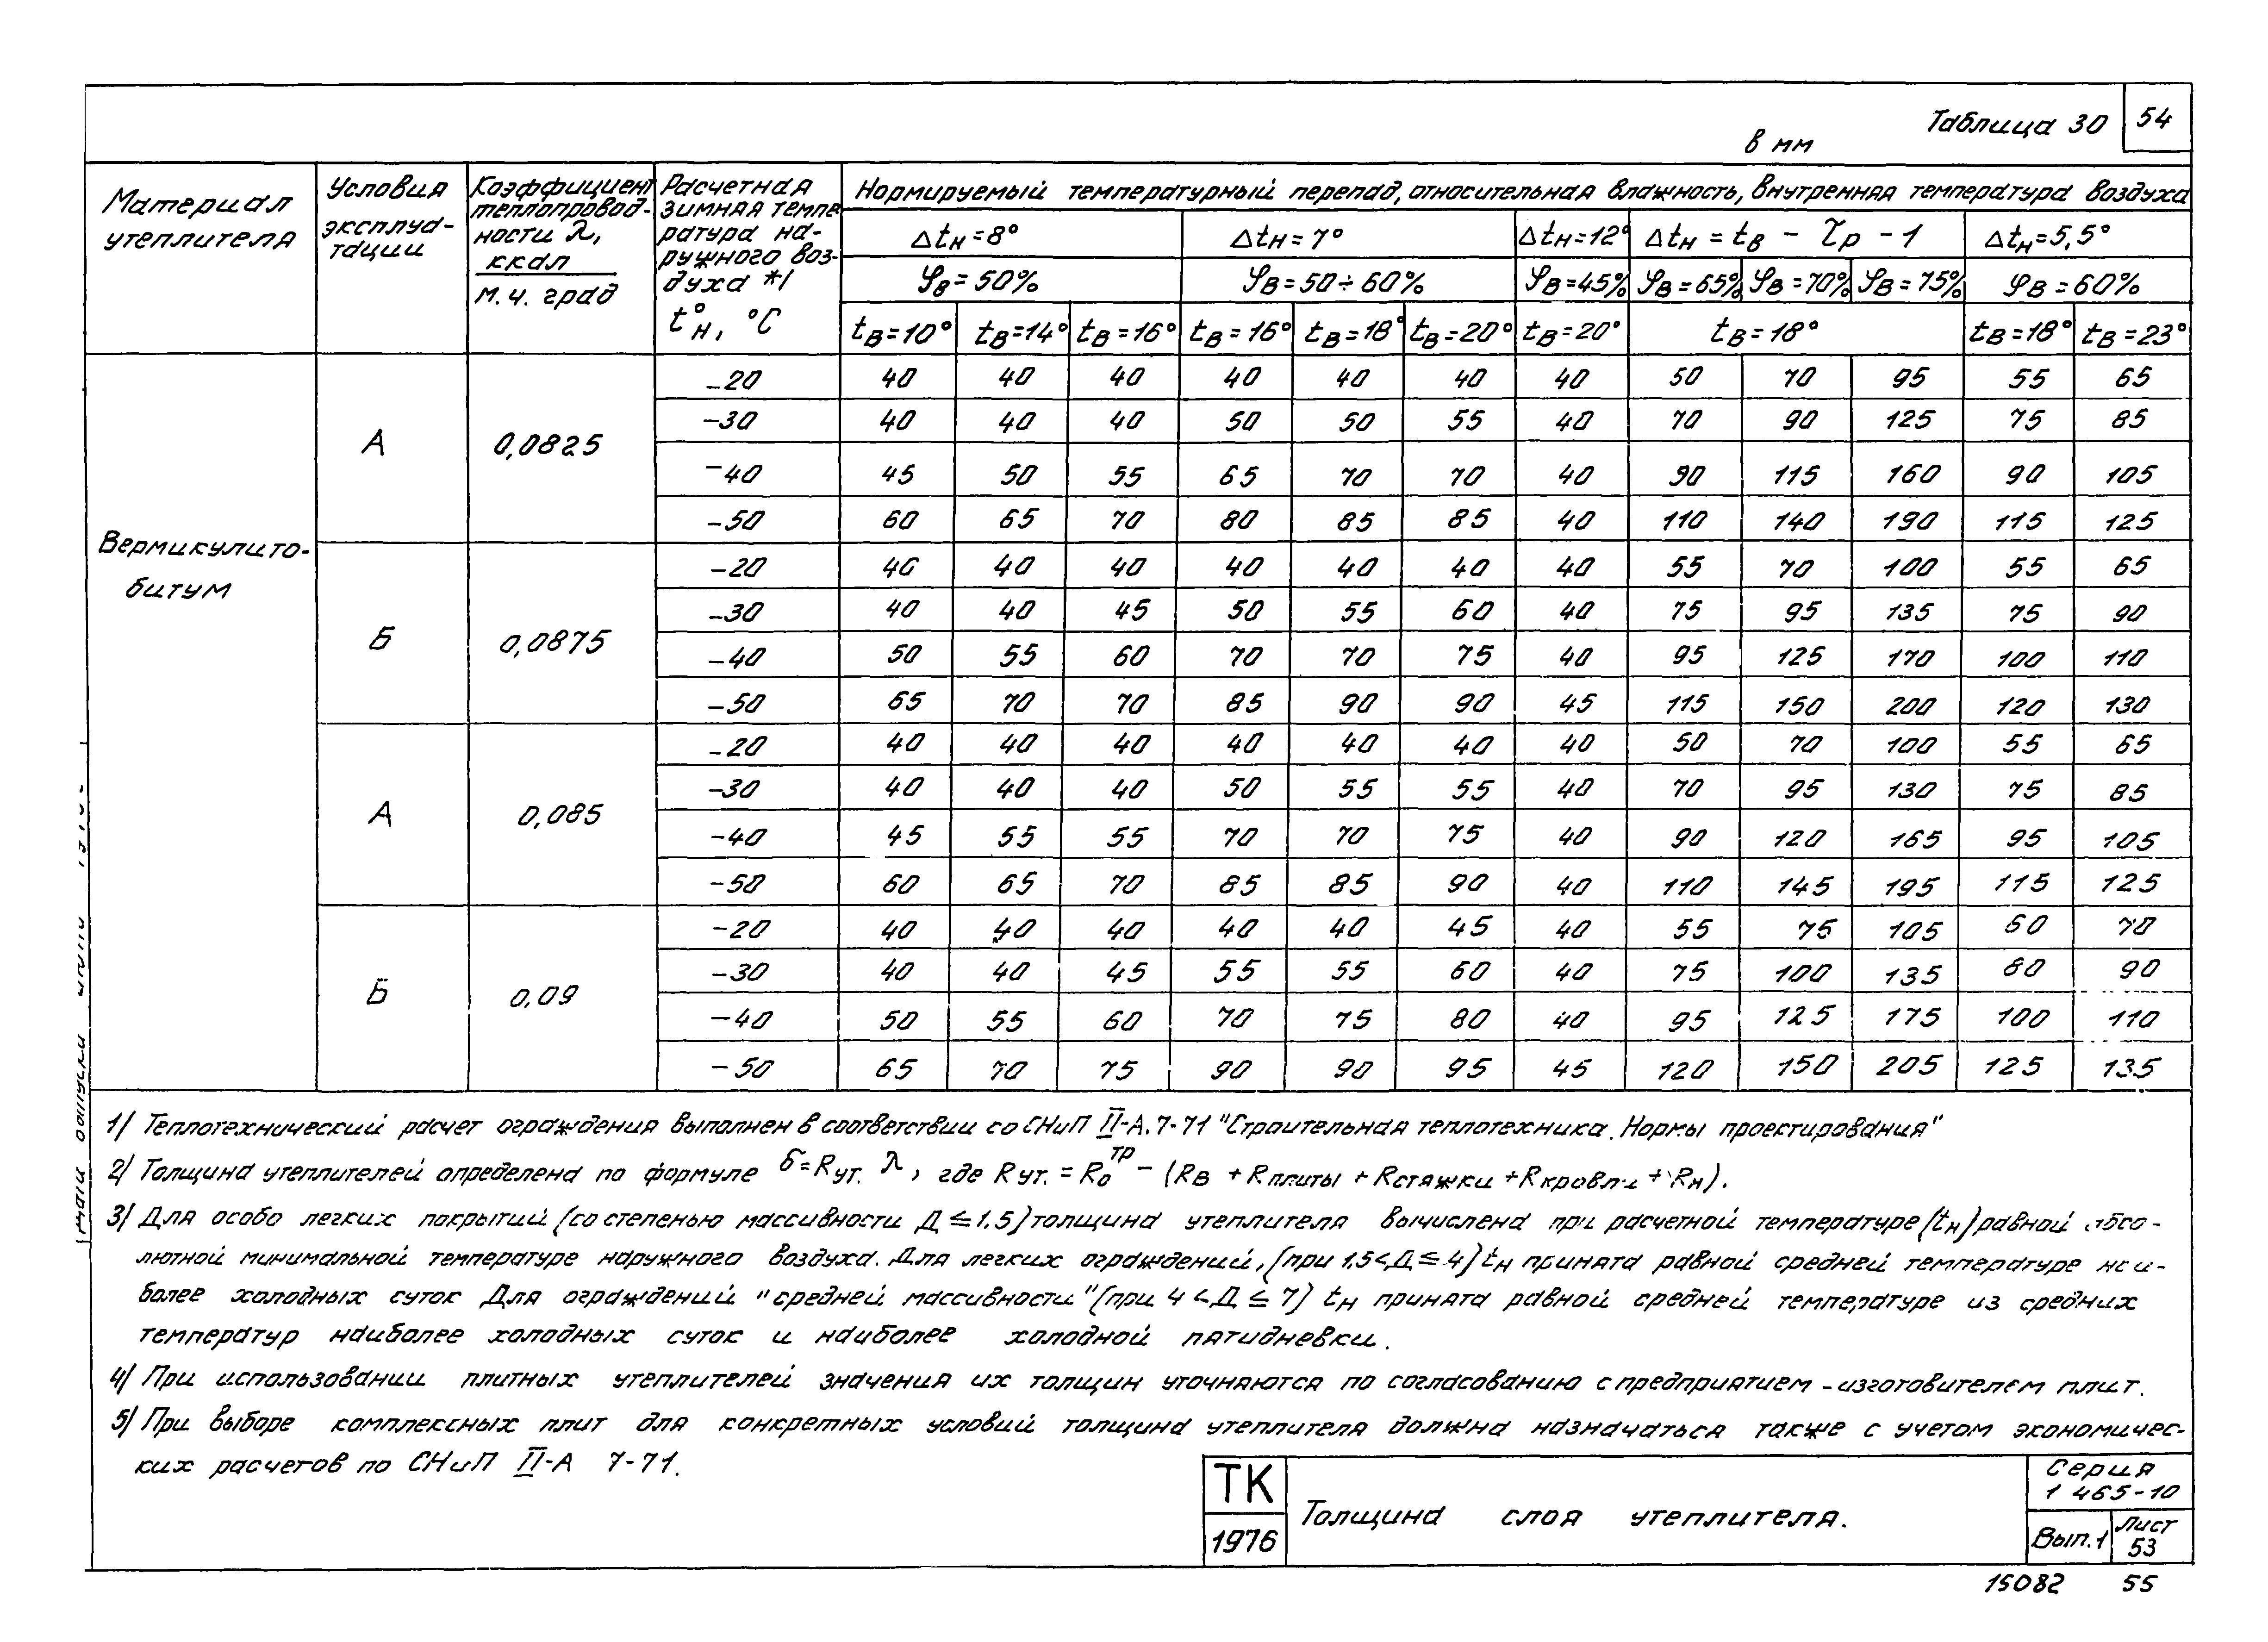 Таблица 30 54
в мм
Материал утеплителя
Условия эксплуа-тации
Коэффициент теплопровод-ности λ, ккал м.ч. град
Расчетная зимняя темпе ратура на-ружного воз-духа *) t°н, °C
Нормируемый температурный перепад, относительная влажность, внутренняя температура воздуха
Δtн=8° Δtн=7° Δtн=12° Δtн = tв - τр - 1 Δtн=5,5°
φв=50% φв=50÷60% φв=45% φв=65% φв=70% φв=75% φв=60%
tв=10° tв=14° tв=16° tв=16° tв=18° tв=20° tв=20° tв=18° tв=18° tв=23°
Вермикулито-
битум
А 0,0825
-20 40 40 40 40 40 40 40 50 70 95 55 65
-30 40 40 40 50 50 55 40 70 90 125 75 85
-40 45 50 55 65 70 70 40 90 115 160 90 105
-50 60 65 70 80 85 85 40 110 140 190 115 125
Б 0,0875
-20 40 40 40 40 40 40 40 55 70 100 55 65
-30 40 40 45 50 55 60 40 75 95 135 75 90
-40 50 55 60 70 70 75 40 95 125 170 100 110
-50 65 70 70 85 90 90 45 115 150 200 120 130
А 0,085
-20 40 40 40 40 40 40 40 50 70 100 55 65
-30 40 40 40 50 55 55 40 70 95 130 75 85
-40 45 55 55 70 70 75 40 90 120 165 95 105
-50 60 65 70 85 85 90 40 110 145 195 115 125
Б 0,09
-20 40 40 40 40 40 45 40 55 75 105 60 70
-30 40 40 45 55 55 60 40 75 100 135 80 90
-40 50 55 60 70 75 80 40 95 125 175 100 110
-50 65 70 75 90 90 95 45 120 150 205 125 135
1) Теплотехнический расчет ограждения выполнен в соответствии со СНиП II-А.7-71 "Строительная теплотехника. Нормы проектирования"
2) Толщина утеплителей определена по формуле δ=Rут. λ, где Rут. = R₀ᵗᵖ - (Rв + Rплиты + Rстяжки + Rкровли + Rн).
3) Для особо легких покрытий (со степенью массивности Д ≤ 1.5) толщина утеплителя вычислена при расчетной температуре (tн) равной абсо-
лютной минимальной температуре наружного воздуха. Для легких ограждений, (при 1.5<Д≤4) tн принята равной средней температуре наи-
более холодных суток Для ограждений "средней массивности" (при 4<Д≤7) tн принята равной средней температуре из средних
температур наиболее холодных суток и наиболее холодной пятидневки.
4) При использовании плитных утеплителей значения их толщин уточняются по согласованию с предприятием-изготовителем плит.
5) При выборе комплексных плит для конкретных условий толщина утеплителя должна назначаться также с учетом экономичес-
ких расчетов по СНиП II-А 7-71.
ТК
1976
Толщина слоя утеплителя.
Серия
1 465-10
Вып.1 Лист 53
15082 55